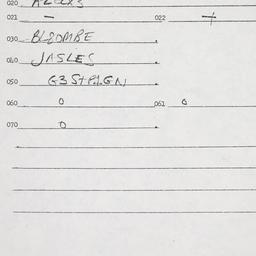 020
021 — 022 +
030 BLOOMBE
040 JASLES
050
060 0 061 0
070 0